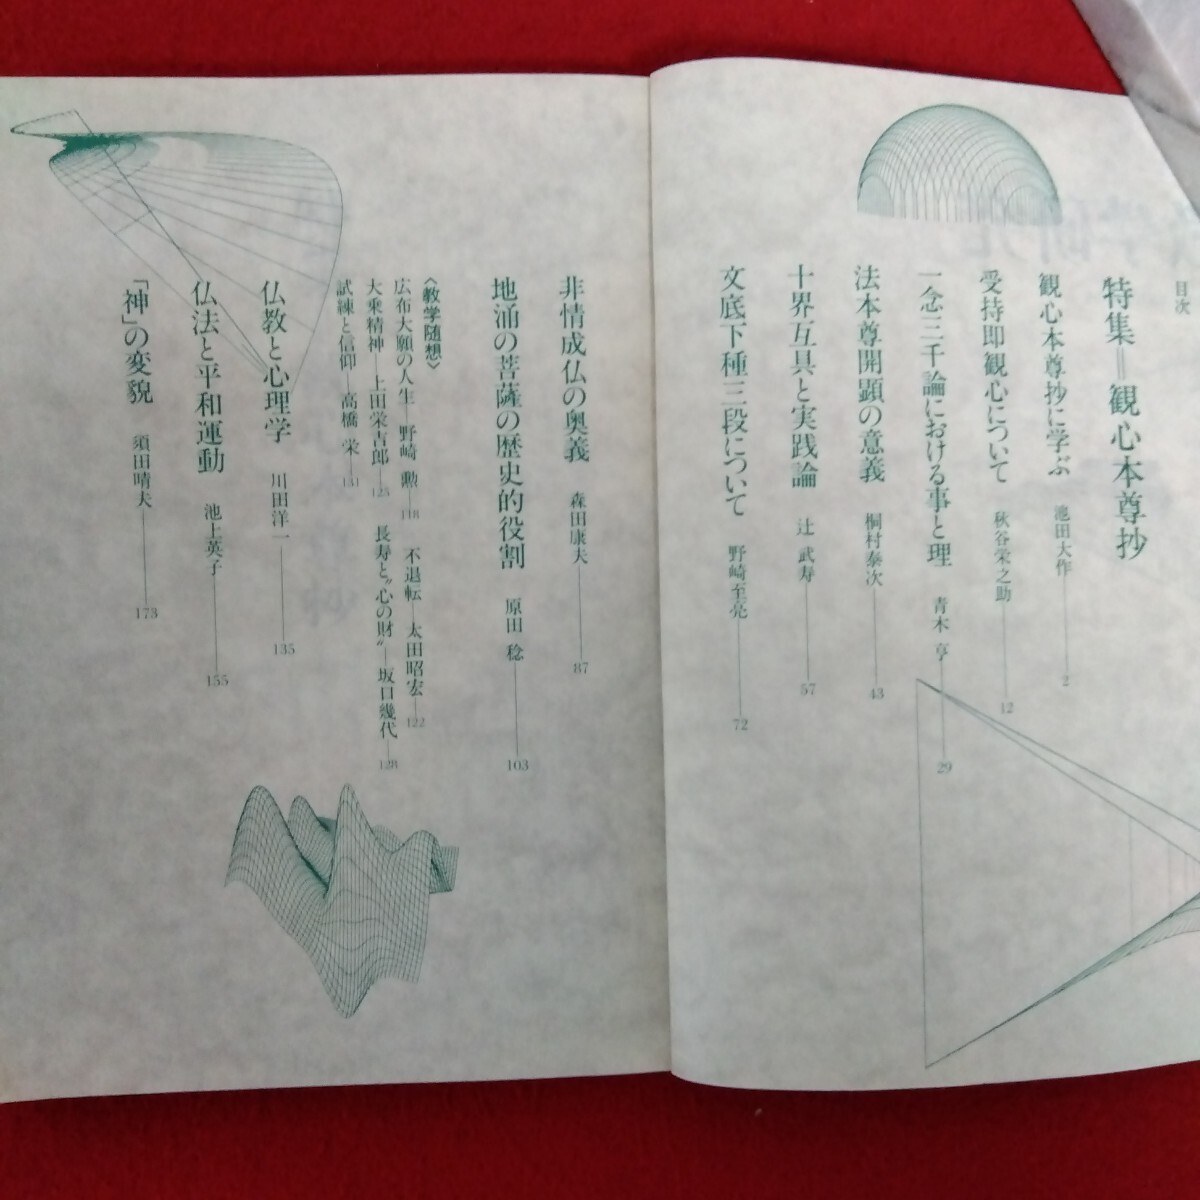 目次
特集＝観心本尊抄
観心本尊抄に学ぶ 池田大作 2
受持即観心について 秋谷栄之助 12
一念三千論における事と理 青木 亨 29
法本尊開顕の意義 桐村泰次 43
十界互具と実践論 辻 武寿 57
文底下種三段について 野崎至亮 72
非情成仏の奥義 森田康夫 87
地涌の菩薩の歴史的役割 原田 稔 103
〈教学随想〉
広布大願の人生 野崎 勲 118
不退転 太田昭宏 122
大乗精神 上田栄吉郎 125
長寿と〝心の財〟 坂口幾代 128
試練と信仰 高橋 栄 131
仏教と心理学 川田洋一 135
仏法と平和運動 池上英子 155
「神」の変貌 須田晴夫 173